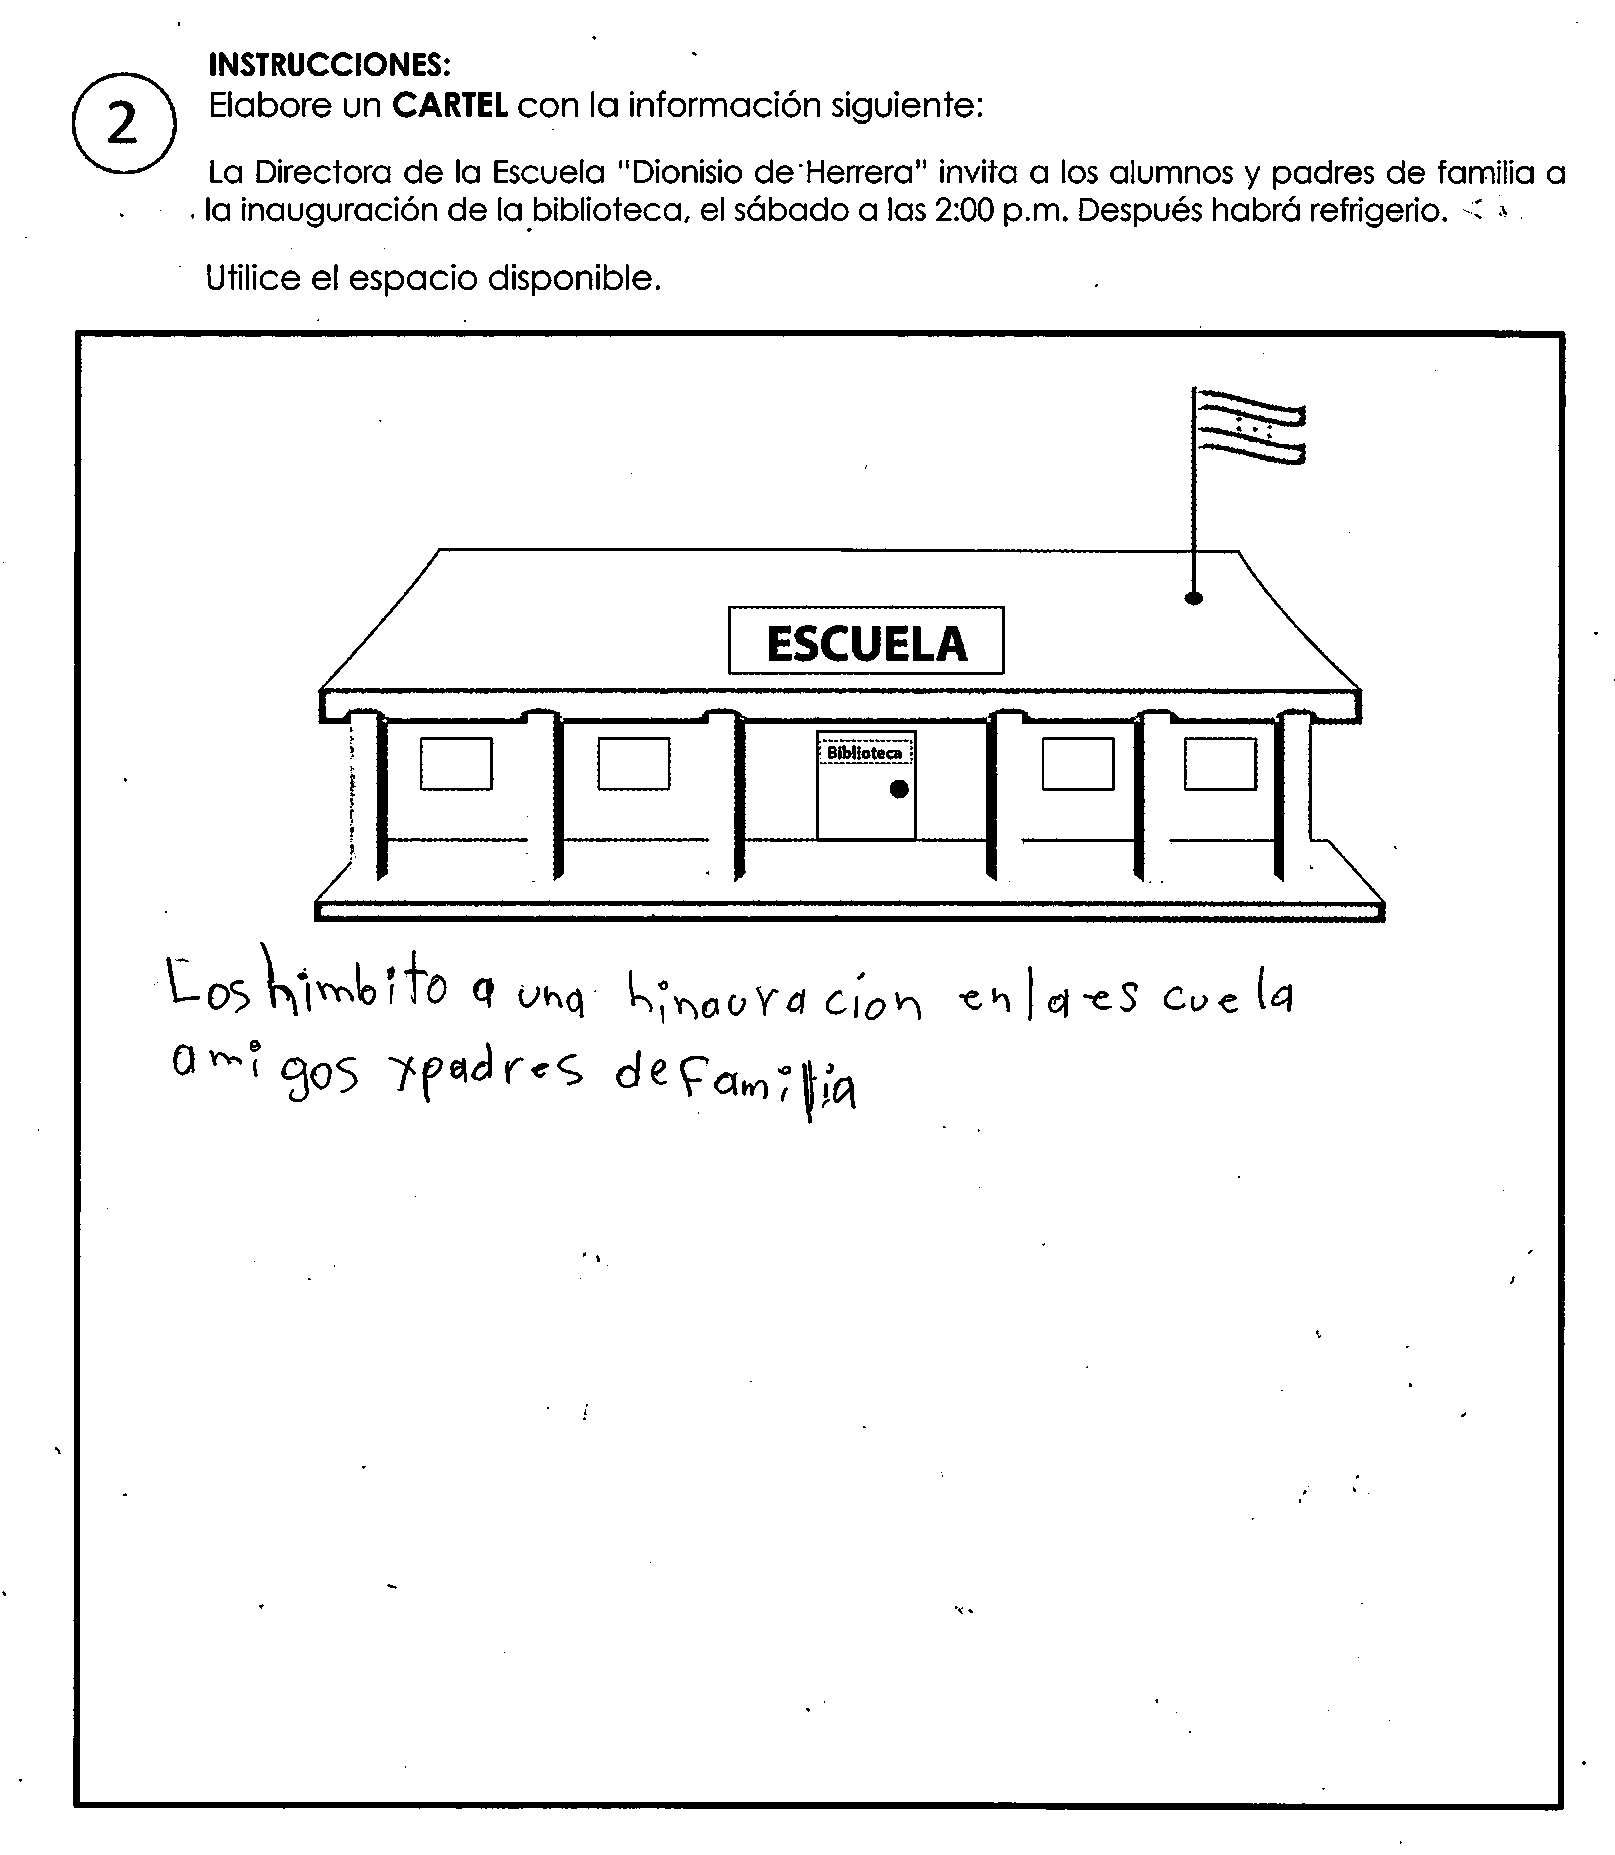 INSTRUCCIONES:
2
Elabore un CARTEL con la información siguiente:
La Directora de la Escuela "Dionisio de Herrera" invita a los alumnos y padres de familia a
la inauguración de la biblioteca, el sábado a las 2:00 p.m. Después habrá refrigerio.
Utilice el espacio disponible.
ESCUELA
Biblioteca
Los himbito a una hinauracion en la es cuela
amigos y padres de familia